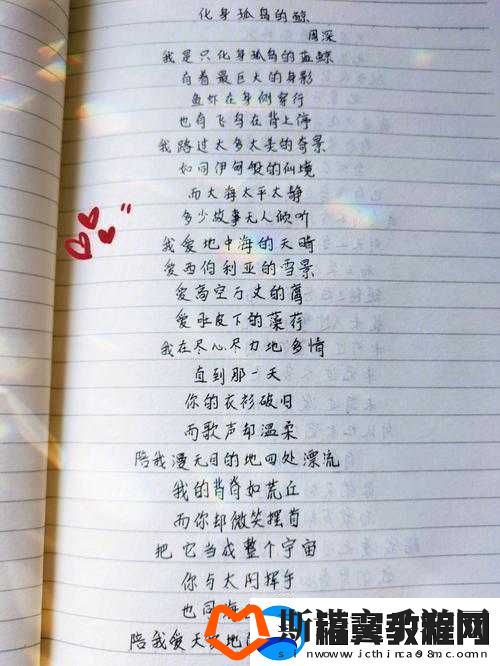 化身孤岛的鲸
周深
我是只化身孤岛的蓝鲸
有着最巨大的身影
鱼虾在身侧穿行
也有飞鸟在背上停
我路过太多太美的奇景
如同伊甸般的仙境
而大海太平太静
多少故事无人倾听
我爱地中海的天晴
爱西伯利亚的雪景
爱高空万丈的鹰
爱水皮下的藻荇
我在尽心尽力地多情
直到那一天
你的衣衫破旧
而歌声却温柔
陪我漫无目的地四处漂流
我的背脊如荒丘
而你却微笑摆首
把它当成整个宇宙
你与太阳挥手
也同海
陪我爱天
教程网